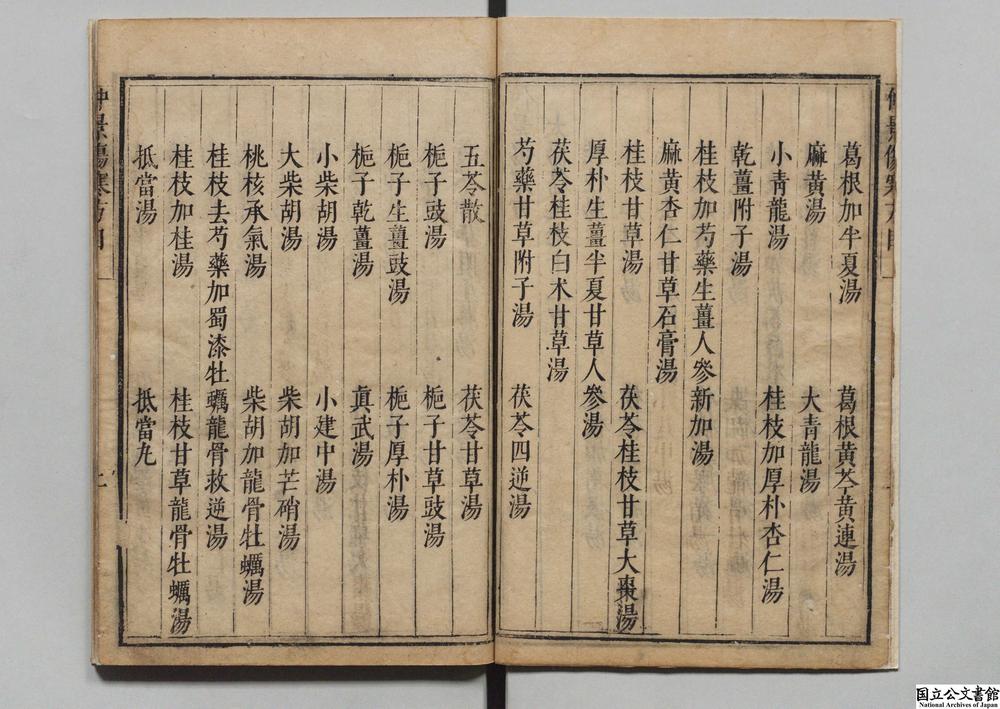 葛根加半夏湯　葛根黃芩黃連湯
麻黃湯　大青龍湯
小青龍湯　桂枝加厚朴杏仁湯
乾薑附子湯
桂枝加芍藥生薑人參新加湯
麻黃杏仁甘草石膏湯
桂枝甘草湯　茯苓桂枝甘草大棗湯
厚朴生薑半夏甘草人參湯
茯苓桂枝白术甘草湯
芍藥甘草附子湯　茯苓四逆湯
五苓散　茯苓甘草湯
梔子豉湯　梔子甘草豉湯
梔子生薑豉湯　梔子厚朴湯
梔子乾薑湯　眞武湯
小柴胡湯　小建中湯
大柴胡湯　柴胡加芒硝湯
桃核承氣湯　柴胡加龍骨牡蠣湯
桂枝去芍藥加蜀漆牡蠣龍骨救逆湯
桂枝加桂湯　桂枝甘草龍骨牡蠣湯
抵當湯　抵當丸
仲景傷寒方
国立公文書館
National Archives of Japan